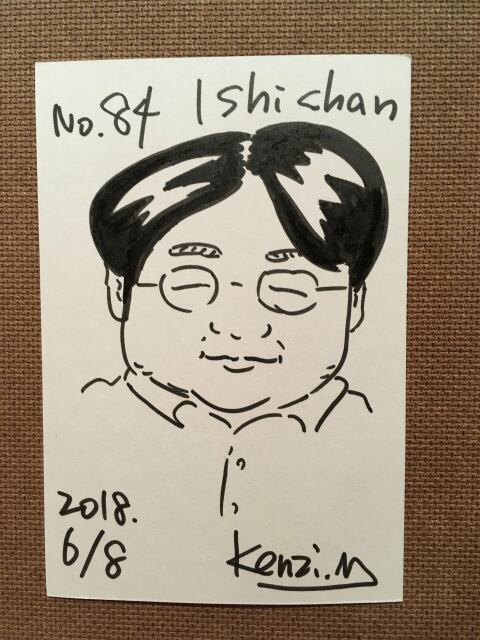 No.84 Ishichan
2018.
6/8
Kenzi.M